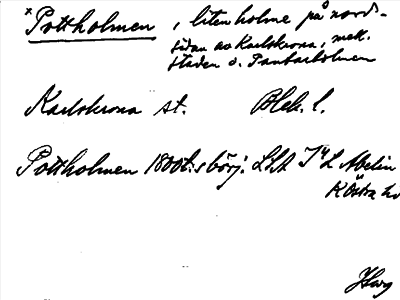 × Pottholmen, liten holme på nord-
sidan av Karlskrona, mell.
staden o. Pantarholmen
Karlskrona st. Blek. l.
Pottholmen 1800t:s börj. LSA Abelin
K Östra